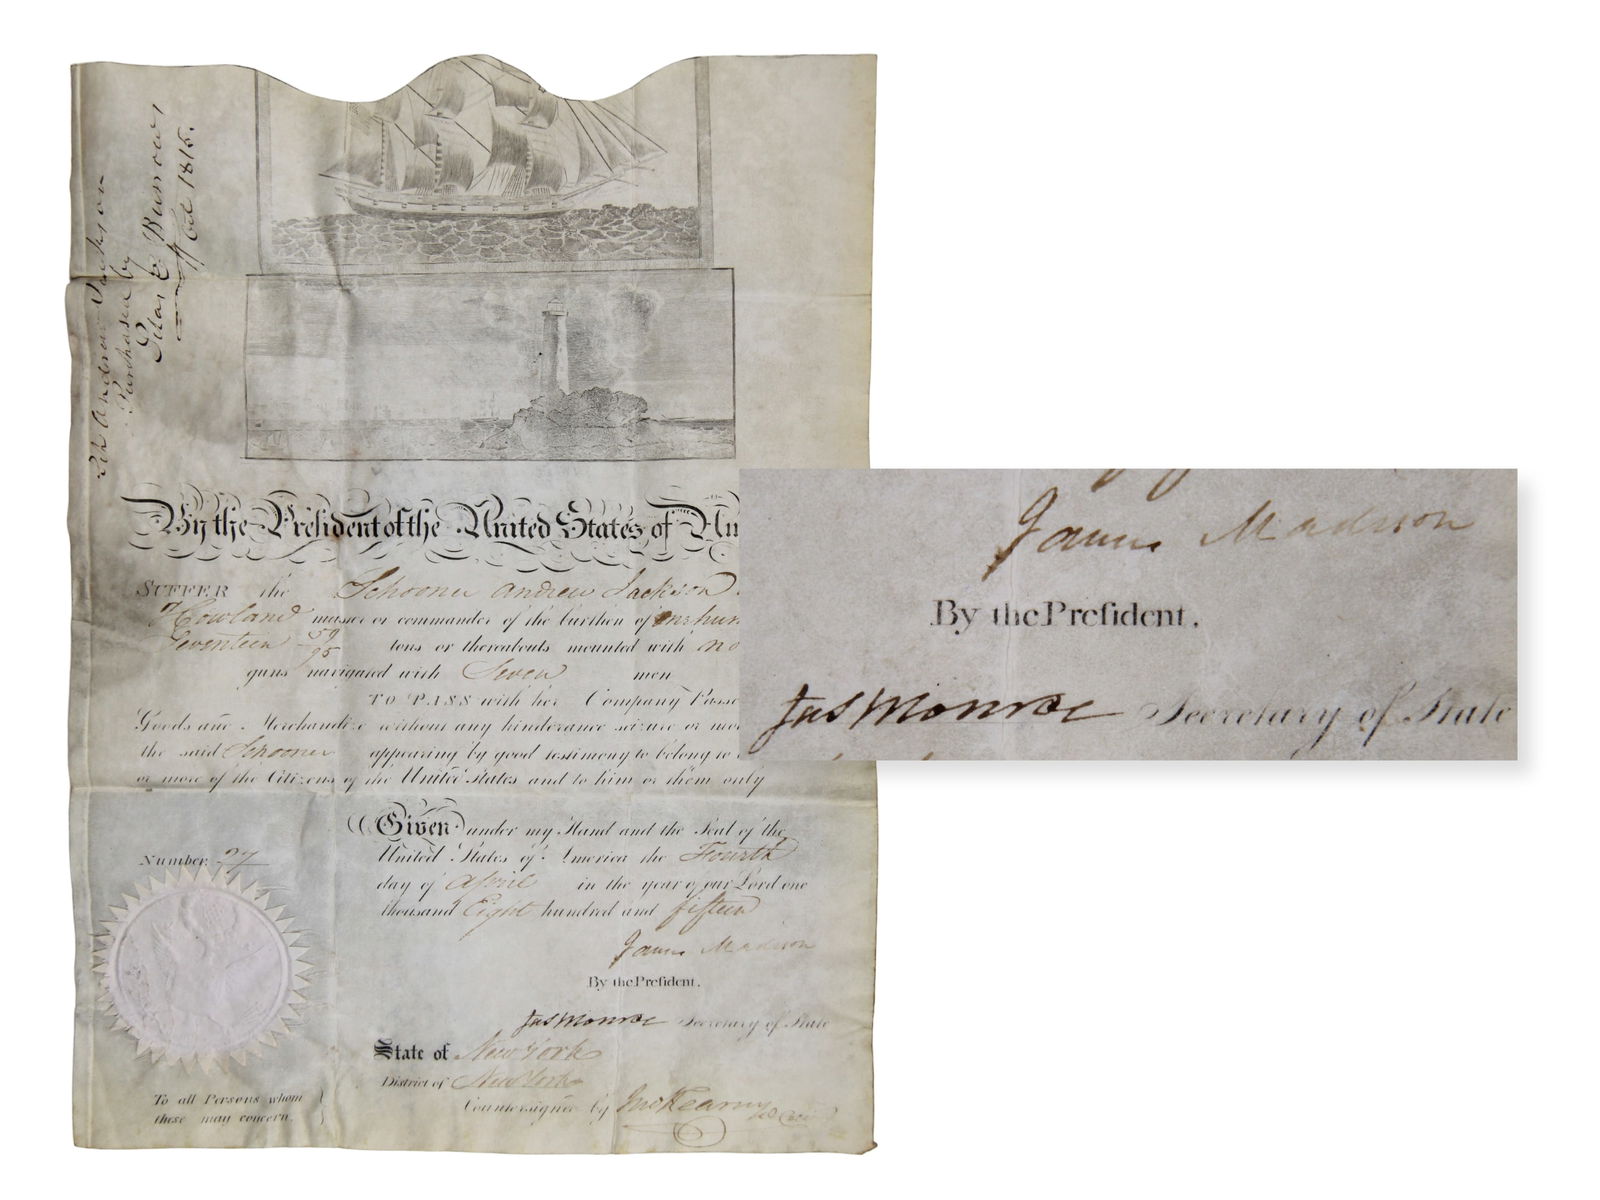 Sch Andrew Jackson
Purchased by
Silas E Burrows
Oct 1815.
By the President of the United States of Am
SUFFER the Schooner Andrew Jackson
Howland master or commander of the burthen of one hun
Seventeen 59/95 tons or thereabouts mounted with no
guns navigated with Seven men
TO PASS with her Company Passe
Goods and Merchandize without any hinderance seizure or mo
the said Schooner appearing by good testimony to belong to
or more of the Citizens of the United States and to him or them only
Given under my Hand and the Seal of the
United States of America the Fourth
day of April in the year of our Lord one
thousand Eight hundred and fifteen
Number 27
James Madison
By the President.
Jas Monroe Secretary of State
State of New York
District of New York
Countersigned by Jno Kearny
To all Persons whom
these may concern.
James Madison
By the President.
Jas Monroe Secretary of State